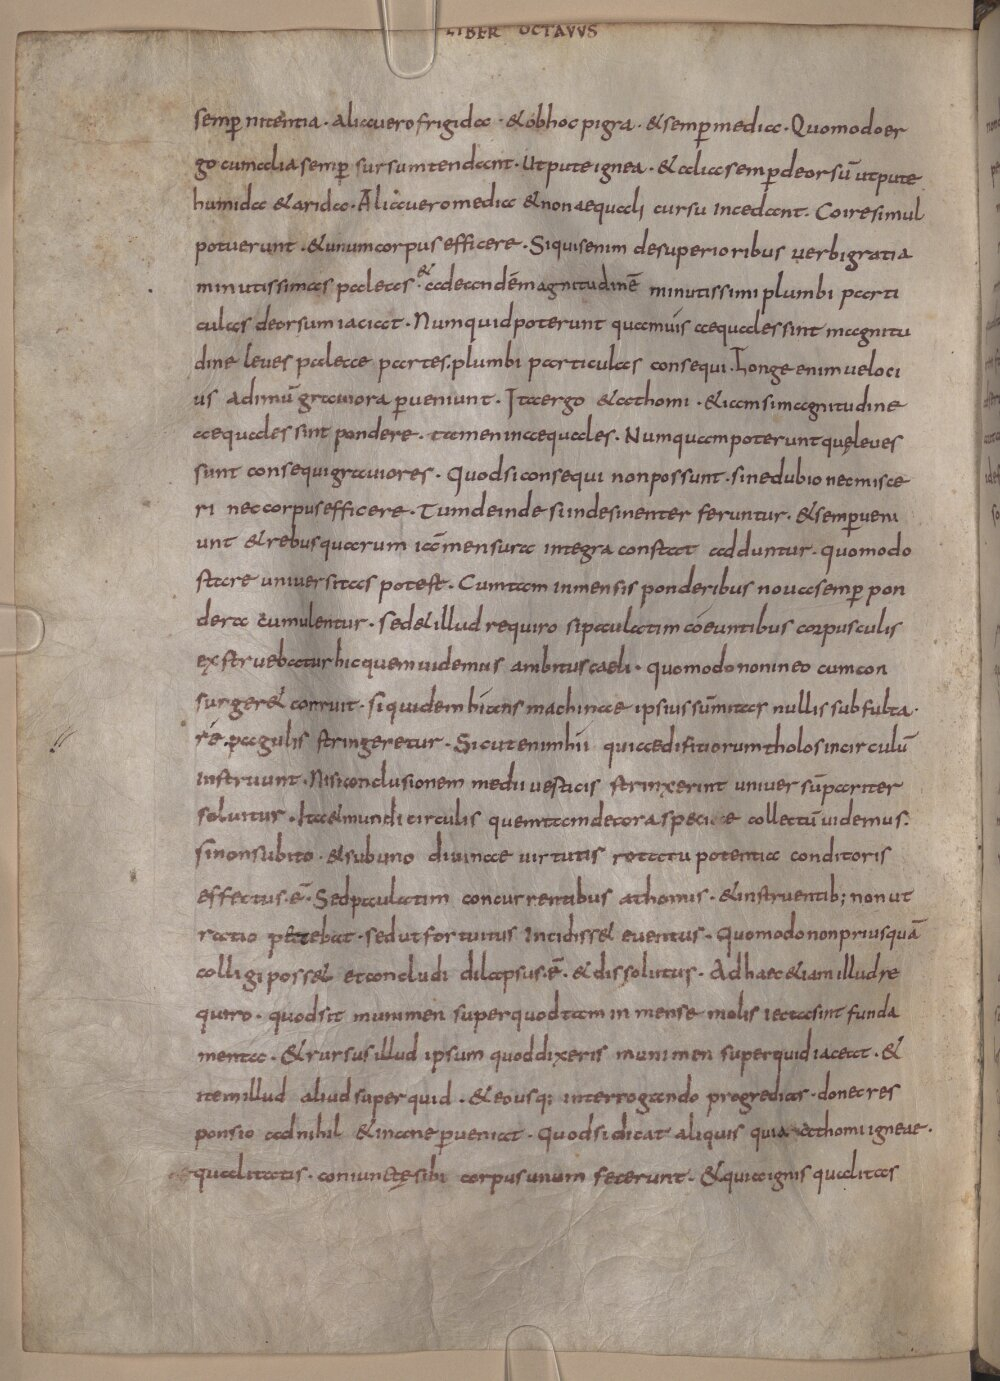 LIBER OCTAVVS
semp̄ nitentia. alia uero frigida. & ob hoc pigra. & semp̄ media. Quomodo er
go cum alia semp̄ sursum tendant. Ut pute ignea. & alia semp̄ deorsū ut pute
humida & arida. Alia uero media & non aequali cursu incedant. Coire simul
potuerunt. & unum corpus efficere. Si quis enim desuperioribus uerbi gratia
minutissimas paleas. & ad eandē magnitudinē minutissimi plumbi parti
culas deorsum iaciat. Numquid poterunt quamuis aequales sint magnitu
dine leues paleae partes. plumbi particulas consequi. Longe enim veloci
us ad imū grauiora p̱ueniunt. Ita ergo & athomi. & iam si magnitudine
aequales sint pondere. tamen inaequales. Numquam poterunt quę leues
sunt consequi grauiores. Quod si consequi non possunt. sine dubio nec misce
ri nec corpus efficere. Tum deinde si indesinenter feruntur. & semp̱ ueni
unt & rebus quarum iā mensura integra constat adduntur. quomodo
stare uniuersitas potest. Cum tam inmensis ponderibus noua semp̄ pon
dera cumulentur. sed & illud requiro si paulatim coeuntibus corpusculis
exstruebatur hic quem uidemus ambitus caeli. quomodo non in eo cum con
surger& corruit. si quidem hians machinae ipsius sūmitas nullis subfulta.
re. pagulis stringeretur. Sicut enim hii qui aedifitiorum tholos in circulū
instruunt. Nisi conclusionem medii uesticis strinxerint uniuersū pariter
soluitur. Ita & mundi circulis quem tam decora specie collectū uidemus.
si non subito. & sub uno diuinae uirtutis potentia conditoris
effectus. ē. Sed paulatim concurrentibus athomis. & instruentib; non ut
ratio petebat. sed ut fortuitus incidiss& euentus. Quomodo non priusquā
colligi poss& et concludi dilapsus. ē. & dissolutus. Ad haec & iam illud re
quiro. quod sit munimen super quod tam in mense molis iecta sint funda
menta. & rursus illud ipsum quod dixeris munimen super quid iaceat. &
item illud aliud super quid. & eousq; interrogando progrediar. donec res
ponsio ad nihil & inane p̱ueniat. Quod si dicat aliquis quia athomi igneae.
qualitatis. coniunctę sibi corpus unum fecerunt. & quia ignis qualitas